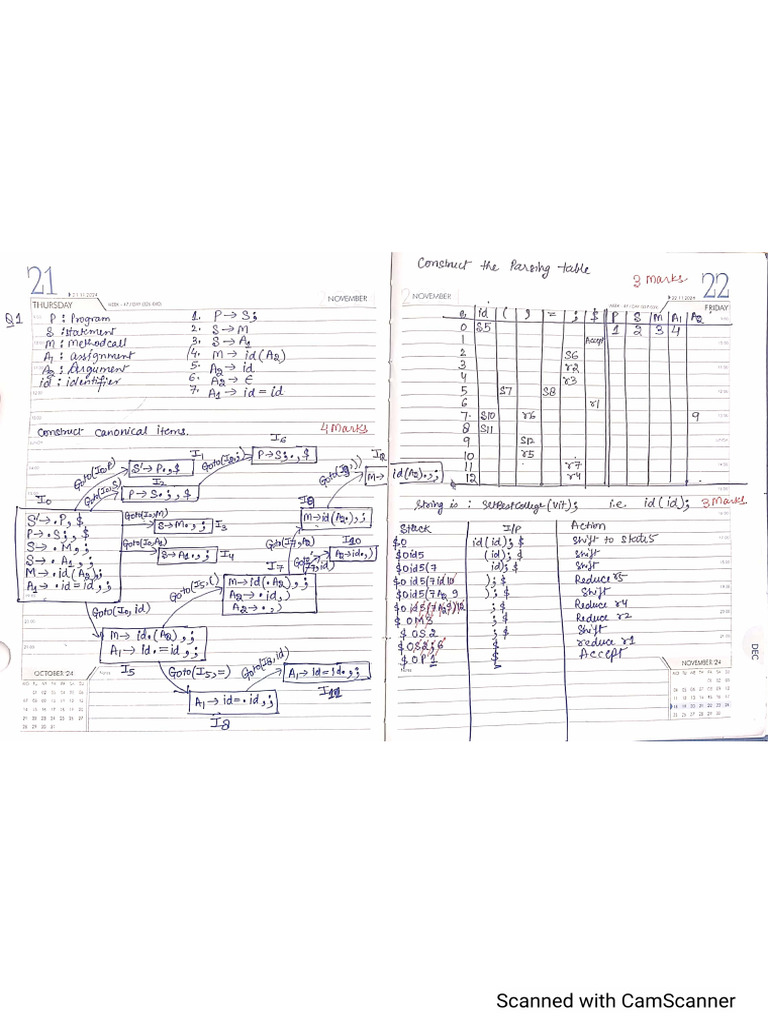 21
21.11.2024
THURSDAY
NOVEMBER
Q1
P : Program
S : statement
M : methodcall
A1 : assignment
A2 : Argument
id : identifier
1. P → S;
2. S → M
3. S → A1
4. M → id(A2)
5. A2 → id
6. A2 → ε
7. A1 → id = id
Construct canonical items.
4 Marks
I0
S' → .P, $
P → .S;, $
S → .M, ;
S → .A1, ;
M → .id(A2), ;
A1 → .id = id, ;
Goto(I0,P)
I1
S' → P., $
Goto(I0,S)
I2
P → S.;, $
I6
P → S;., $
Goto(I0,M)
S → M., ;
I3
Goto(I0,A1)
S → A1., ;
I4
Goto(I0,id)
M → id.(A2), ;
A1 → id.=id, ;
I5
Goto(I5,()
I7
M → id(.A2), ;
A2 → .id, )
A2 → ., )
Goto(I7,A2)
I9
M → id(A2.), ;
I10
A2 → id., )
M → id(A2)., ;
Goto(I5,=)
A1 → id=.id, ;
I8
Goto(I8,id)
A1 → id=id., ;
I11
OCTOBER '24
Construct the Parsing table
3 Marks
22
NOVEMBER
22.11.2024
FRIDAY
id ( ) = ; $ P S M A1 A2
0 S5 1 2 3 4
1 Accept
2 S6
3 r2
4 r3
5 S7 S8
6 r1
7 S10 r6 9
8 S11
9 S12
10 r5
11 r7
12 r4
String is : SetBestCollege(Vit); i.e. id(id); 3 Marks
Stack I/P Action
$0 id(id);$ Shift to state 5
$0id5 (id);$ Shift
$0id5(7 id);$ Shift
$0id5(7id10 );$ Reduce r5
$0id5(7A2 9 );$ Shift
$0id5(7A29)12 ;$ Reduce r4
$0M3 ;$ Reduce r2
$0S2 ;$ Shift
$0S2;6 $ reduce r1
$0P1 $ Accept
NOVEMBER '24
DEC
Scanned with CamScanner